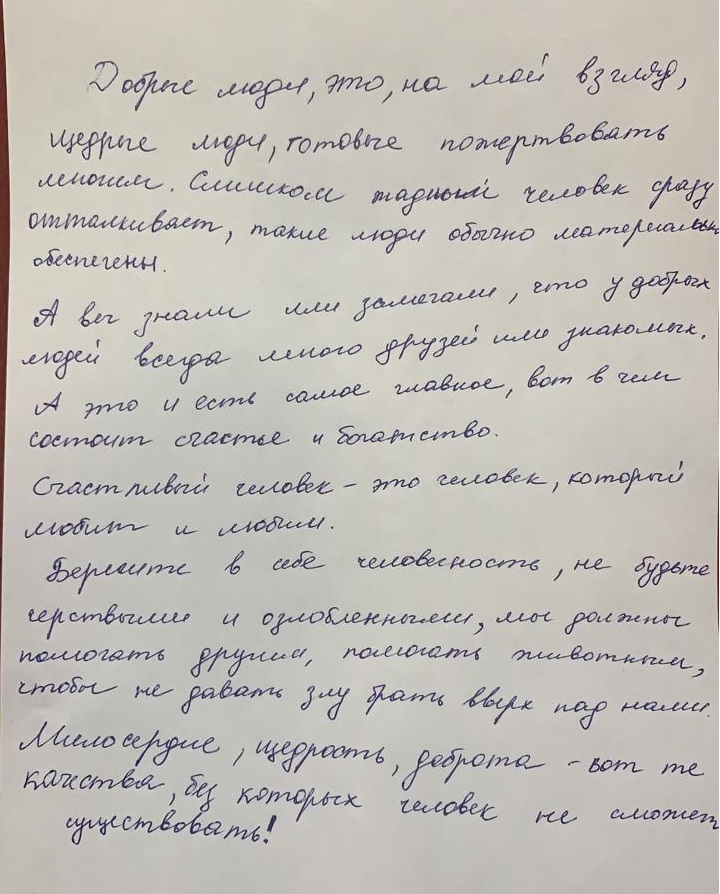 Добрые люди, это, на мой взгляд,
щедрые люди, готовые пожертвовать
многим. Слишком жадный человек сразу
отталкивает, такие люди обычно материально
обеспечены.
А вы знали или замечали, что у добрых
людей всегда много друзей или знакомых.
А это и есть самое главное, вот в чем
состоит счастье и богатство.
Счастливый человек - это человек, который
любит и любим.
Берегите в себе человечность, не будьте
черствыми и озлобленными, мы должны
помогать другим, помогать животным,
чтобы не давать злу брать вверх над нами.
Милосердие, щедрость, доброта - вот те
качества, без которых человек не сможет
существовать!